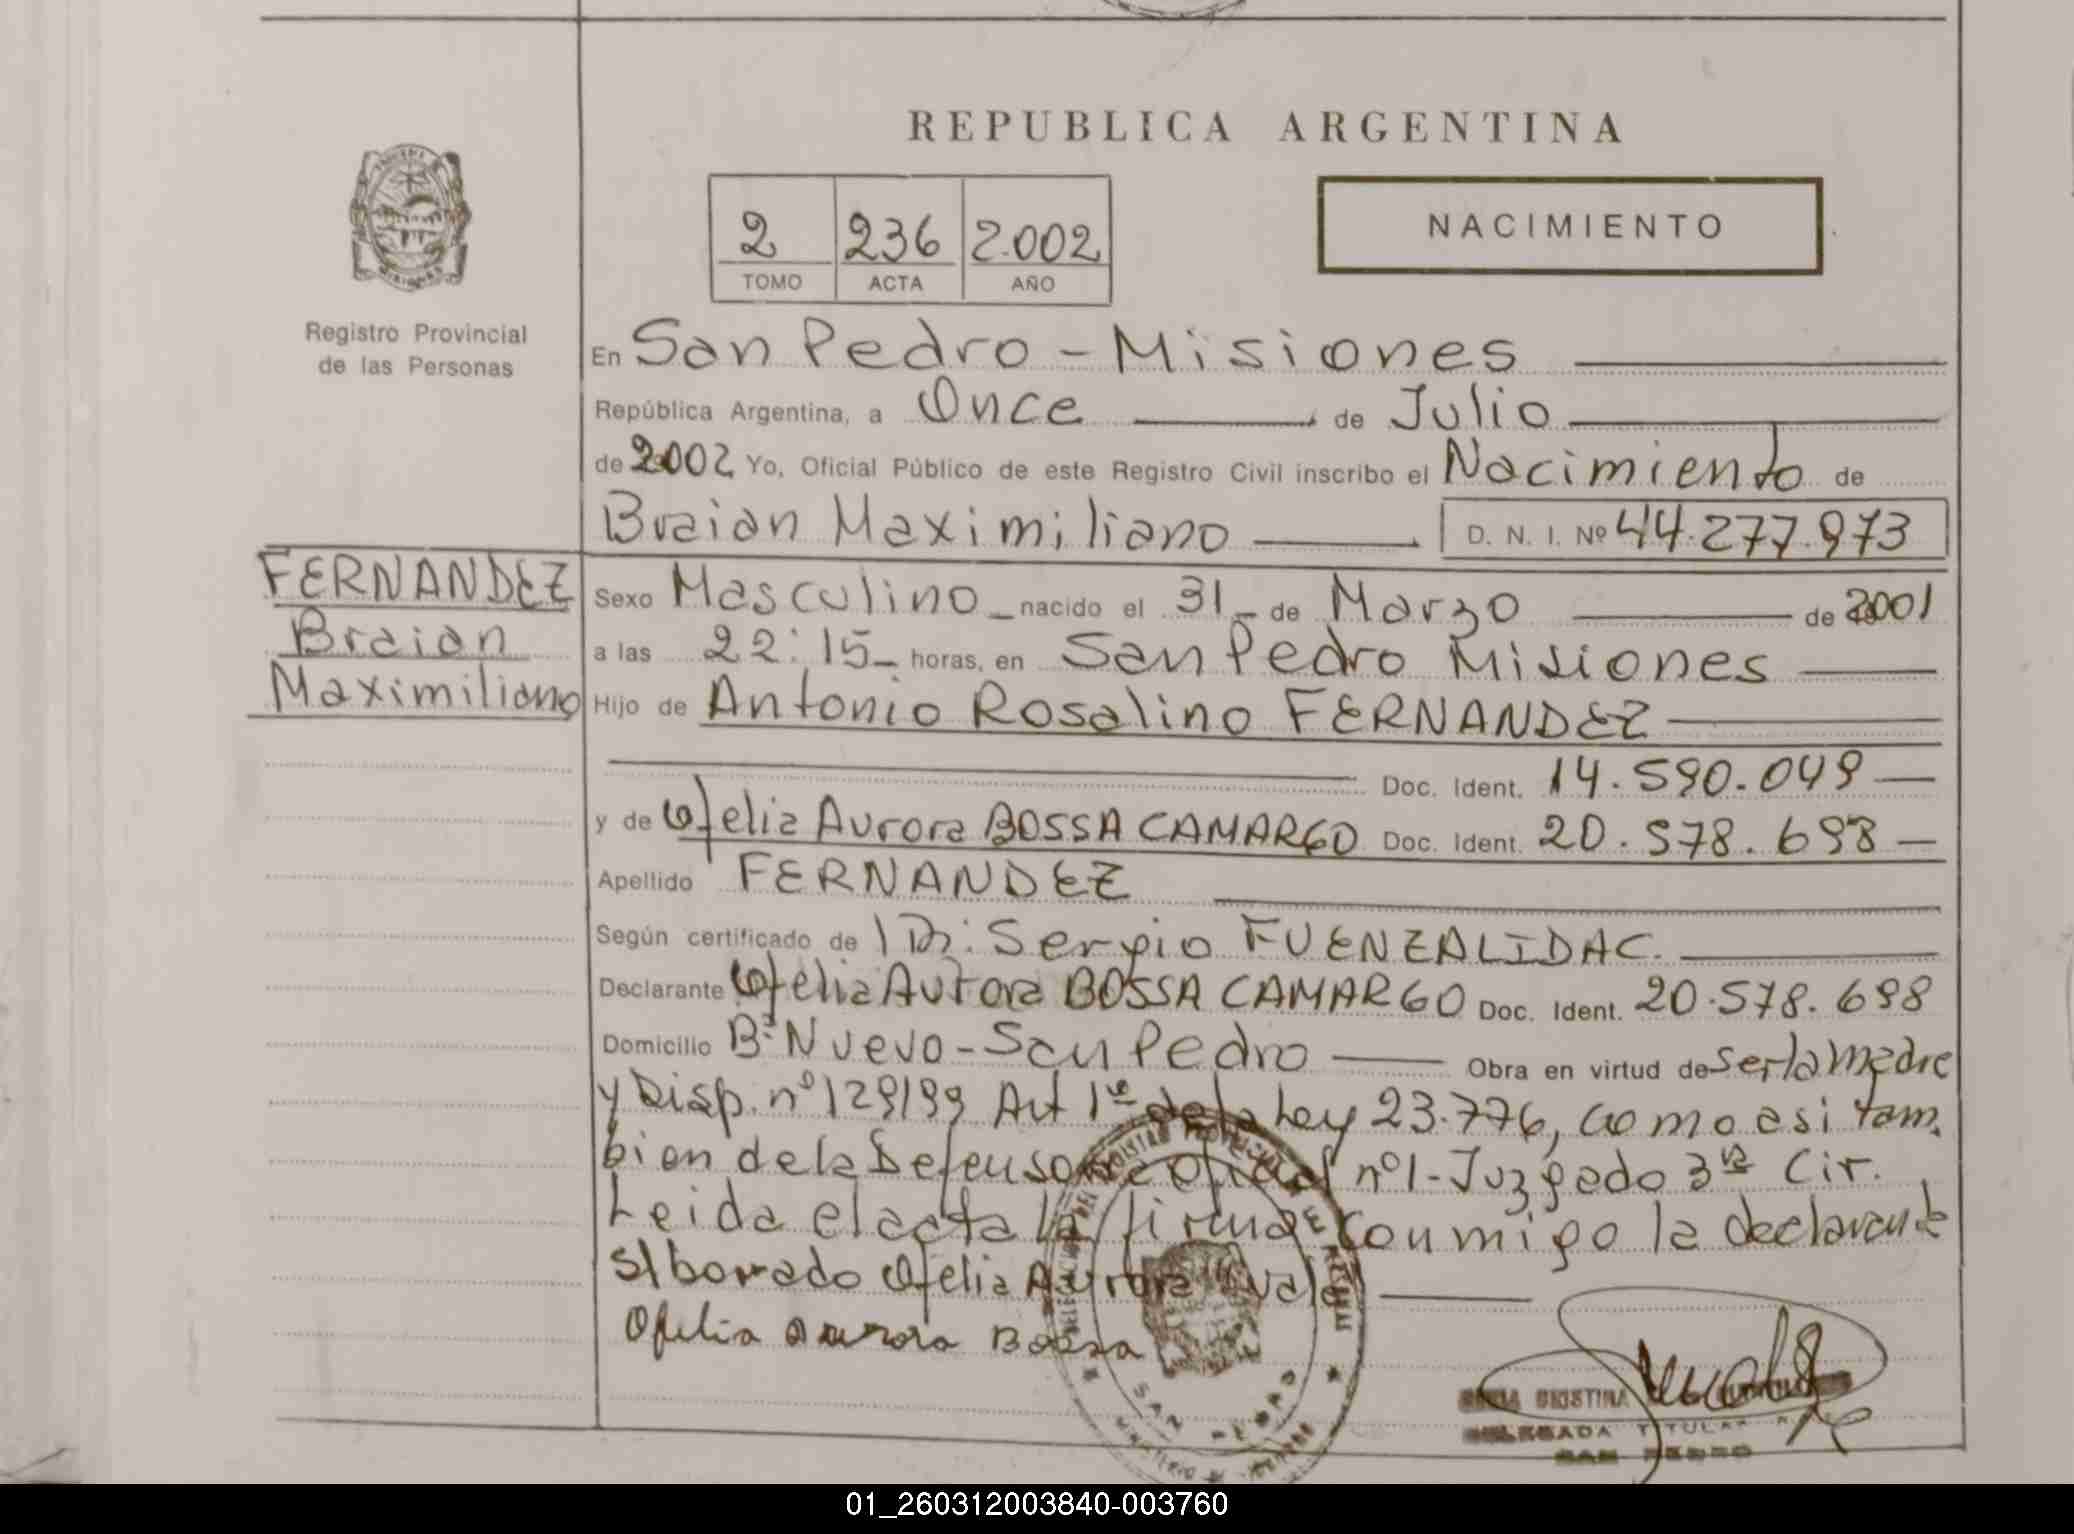 REPUBLICA ARGENTINA
2 236 2.002
TOMO ACTA AÑO
NACIMIENTO
Registro Provincial
de las Personas
En San Pedro - Misiones
República Argentina, a Once de Julio
de 2002 Yo, Oficial Público de este Registro Civil inscribo el Nacimiento de
Braian Maximiliano D. N. I. Nº 44.277.973
FERNANDEZ
Braian
Maximiliano
Sexo Masculino nacido el 31 de Marzo de 2001
a las 22:15 horas, en San Pedro Misiones
Hijo de Antonio Rosalino FERNANDEZ
Doc. Ident. 14.590.049
y de Ofelia Aurora BOSSA CAMARGO Doc. Ident. 20.578.698
Apellido FERNANDEZ
Según certificado de Dr. Sergio FUENZALIDA C.
Declarante Ofelia Aurora BOSSA CAMARGO Doc. Ident. 20.578.698
Domicilio Bº Nuevo - San Pedro Obra en virtud de ser la madre
y Disp. nº 129/99 Art 1º de la Ley 23.776, como asi tam
bien de la Defensoria Oficial nº 1 - Juzgado 3ra Cir.
Leida el acta la firma conmigo la declarante
S/borrado Ofelia Aurora Vale
Ofelia Aurora Bossa
SAN PEDRO
DELEGADA TITULAR
SAN PEDRO
01_260312003840-003760